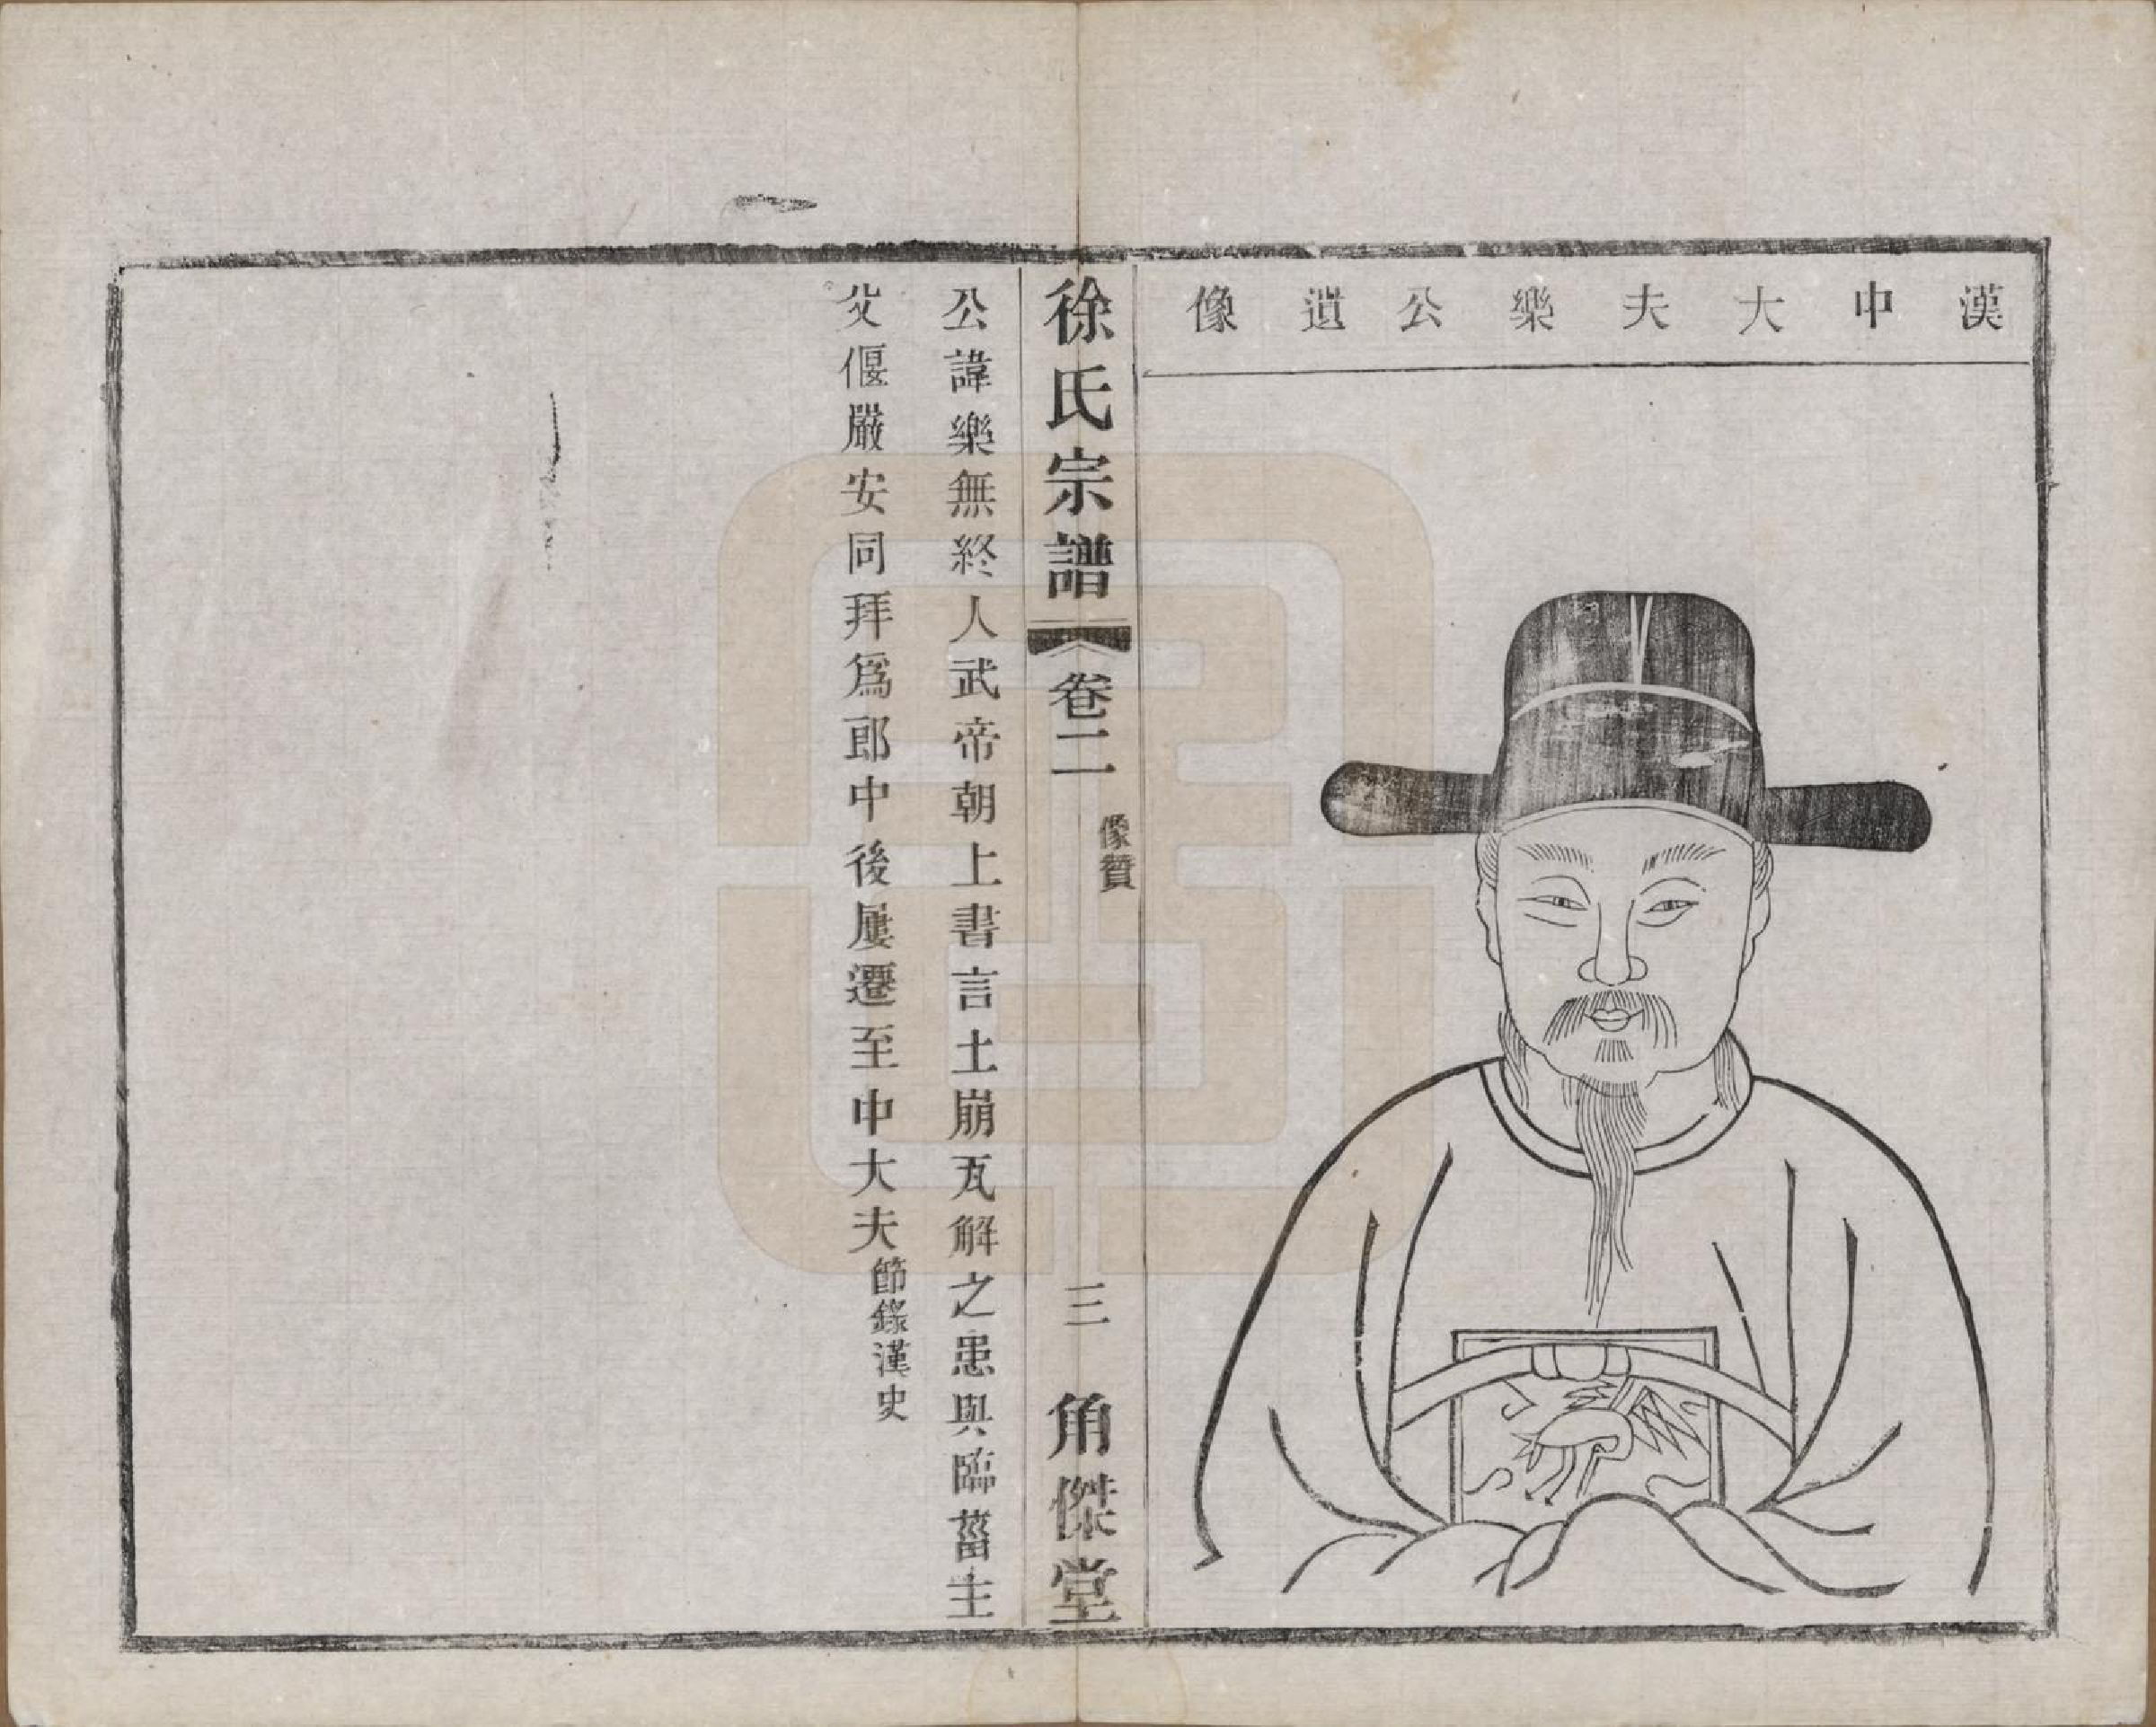 漢中大夫樂公遺像
徐氏宗譜 卷二 像贊 三 角傑堂
公諱樂無終人武帝朝上書言土崩瓦解之患與臨菑主
父偃嚴安同拜爲郎中後屢遷至中大夫節錄漢史